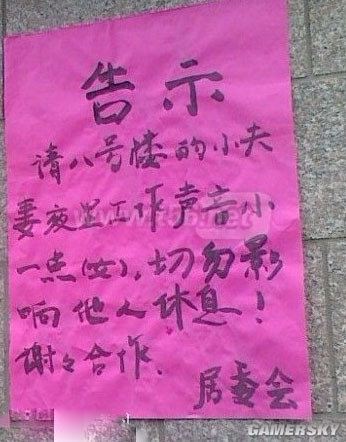 告示
请八号楼的小夫
妻夜里工作声音小
一点(女),切勿影
响他人休息!
谢々合作.
居委会
GAMERSKY